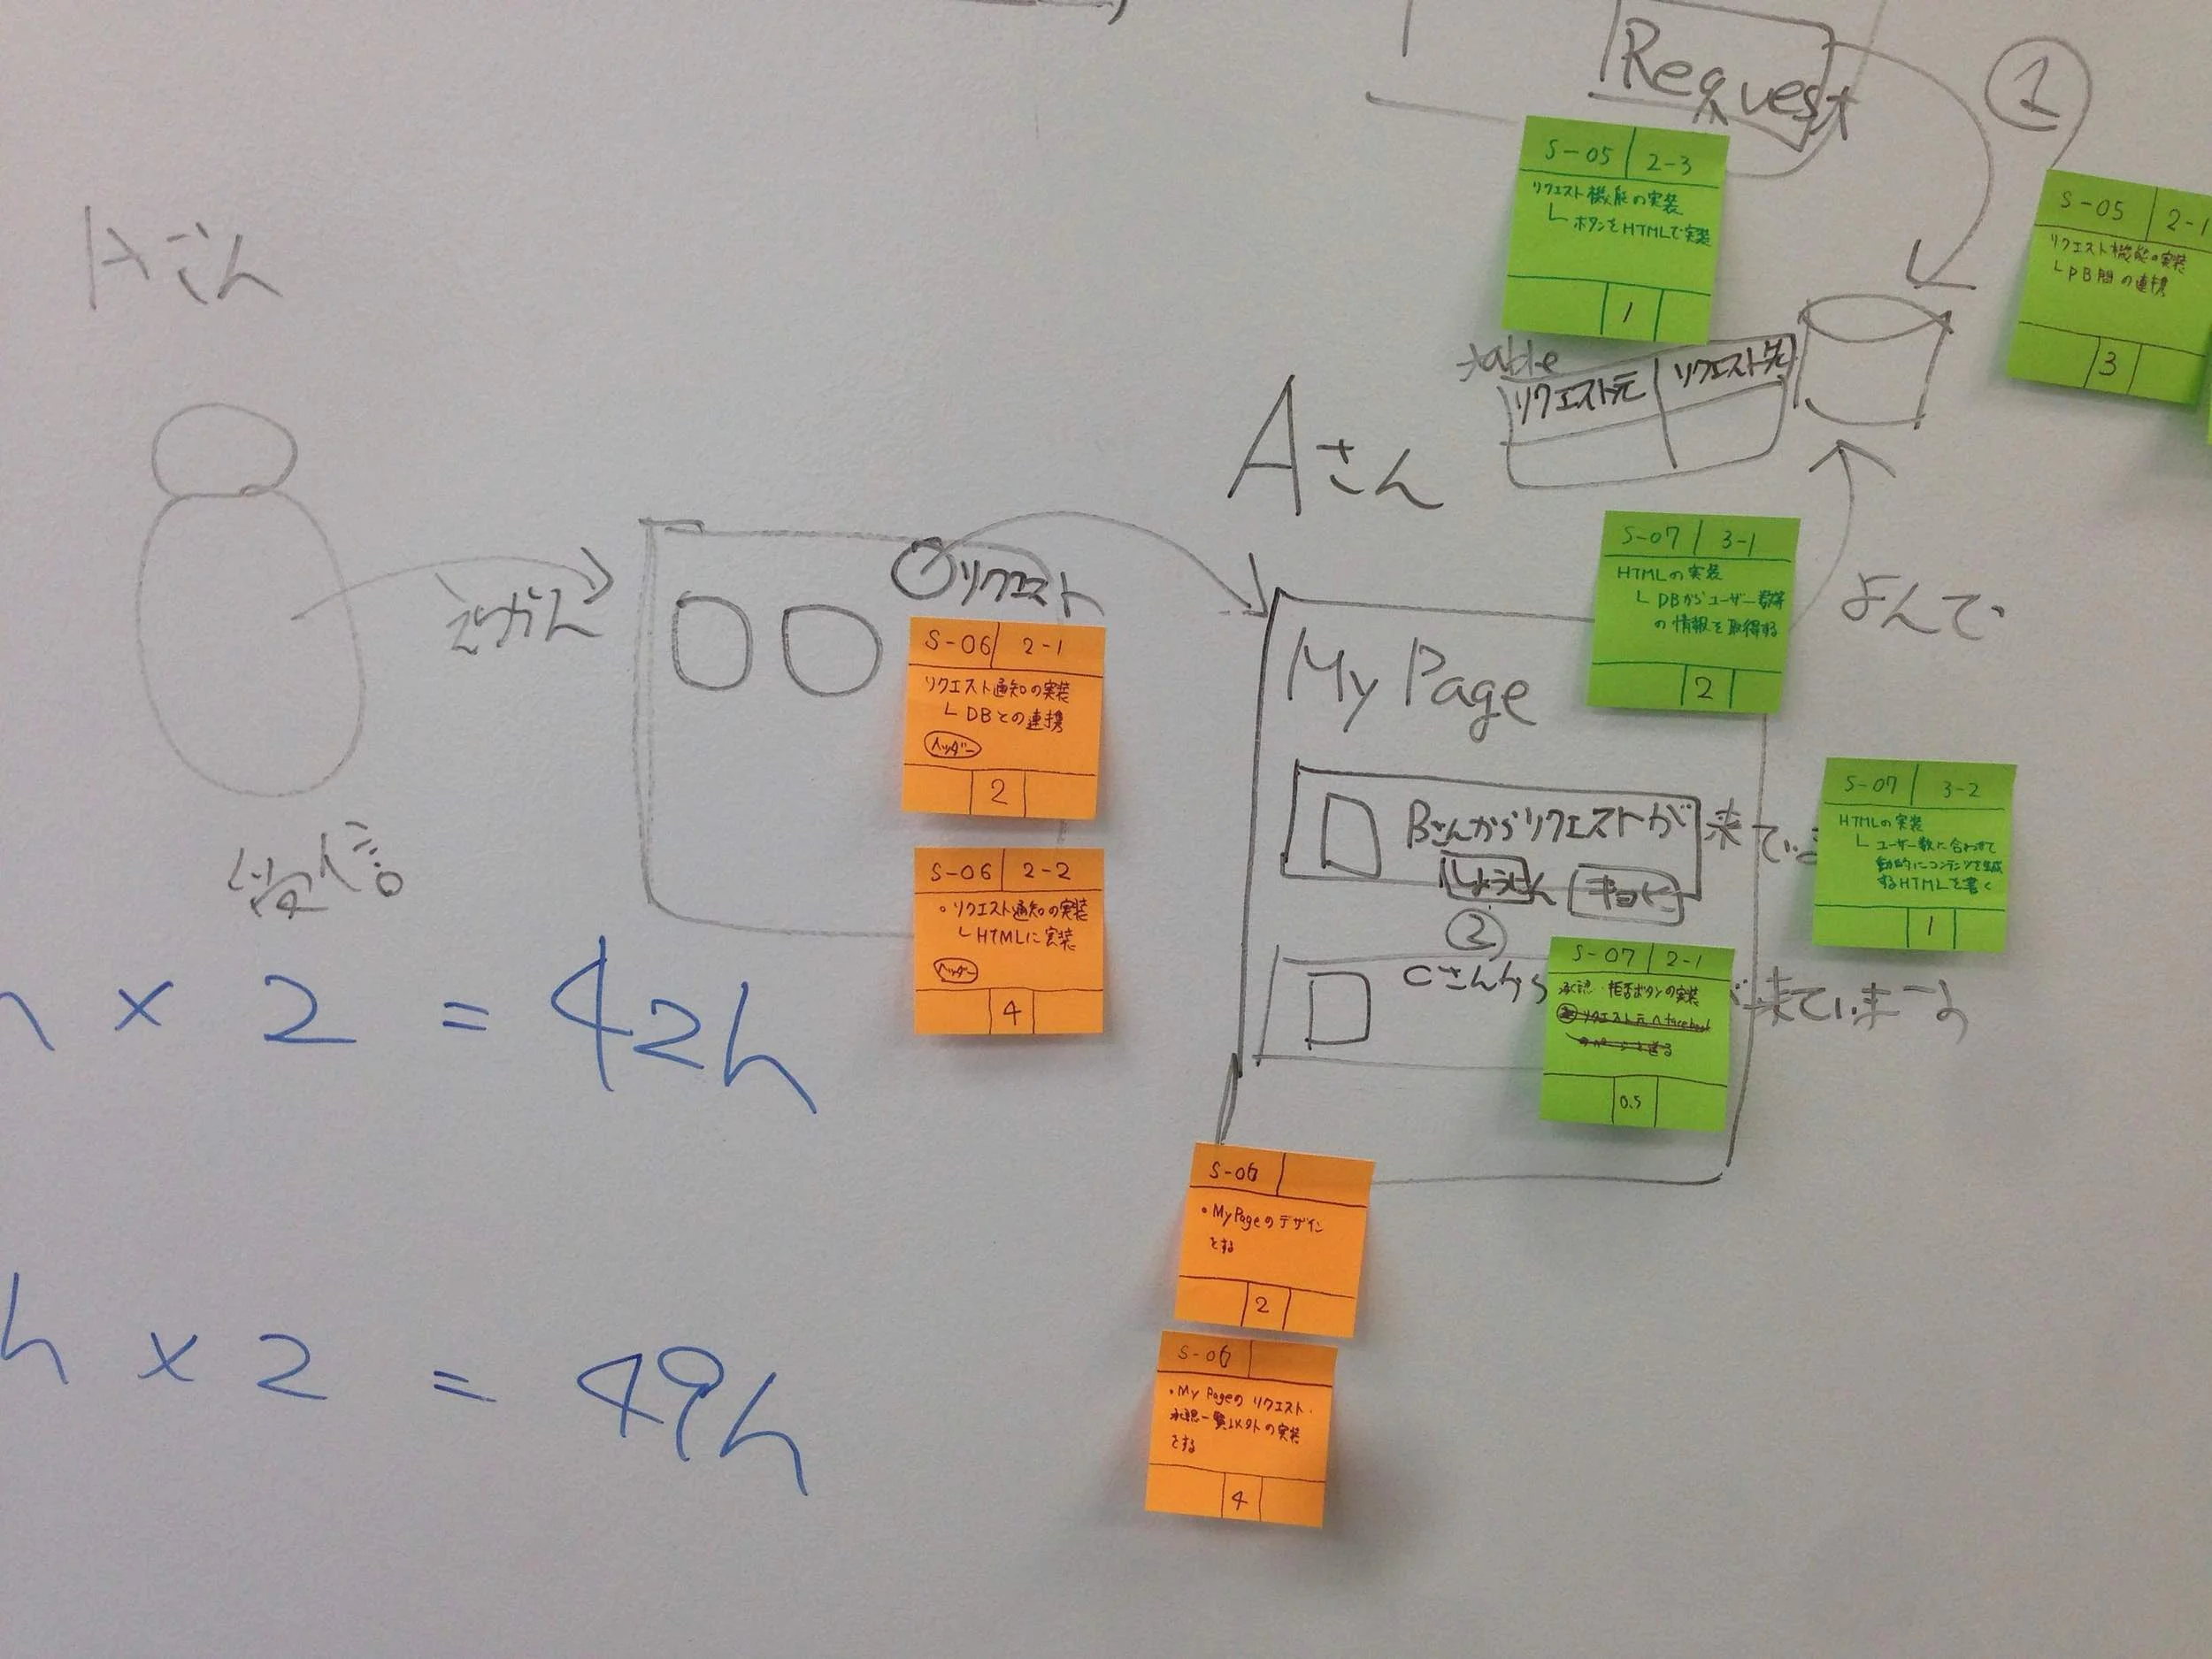 Request
1
S-05 2-3
リクエスト機能の実装
└ ボタンをHTMLで実装
1
S-05 2-1
リクエスト機能の実装
└ DB間の連携
3
table
リクエスト元 リクエスト先
Aさん
Aさん
リクエスト
S-06 2-1
リクエスト通知の実装
└ DBとの連携
ヘッダー
2
S-06 2-2
・リクエスト通知の実装
└ HTMLに実装
ヘッダー
4
受信
S-07 3-1
HTMLの実装
└ DBからユーザー数等
の情報を取得する
2
よんで
My Page
Bさんからリクエストが来てい
しょうにん キョヒ
②
S-07 3-2
HTMLの実装
└ ユーザー数に合わせて
動的にコンテンツを生成
するHTMLを書く
1
Cさんから が来ていまーす
S-07 2-1
承認・拒否ボタンの実装
リクエスト元へfacebook
のページを送る
0.5
× 2 = 42h
S-06
・My Pageのデザイン
をする
2
h × 2 = 49h
S-06
・My Pageのリクエスト・
承認一覧以外の実装
をする
4